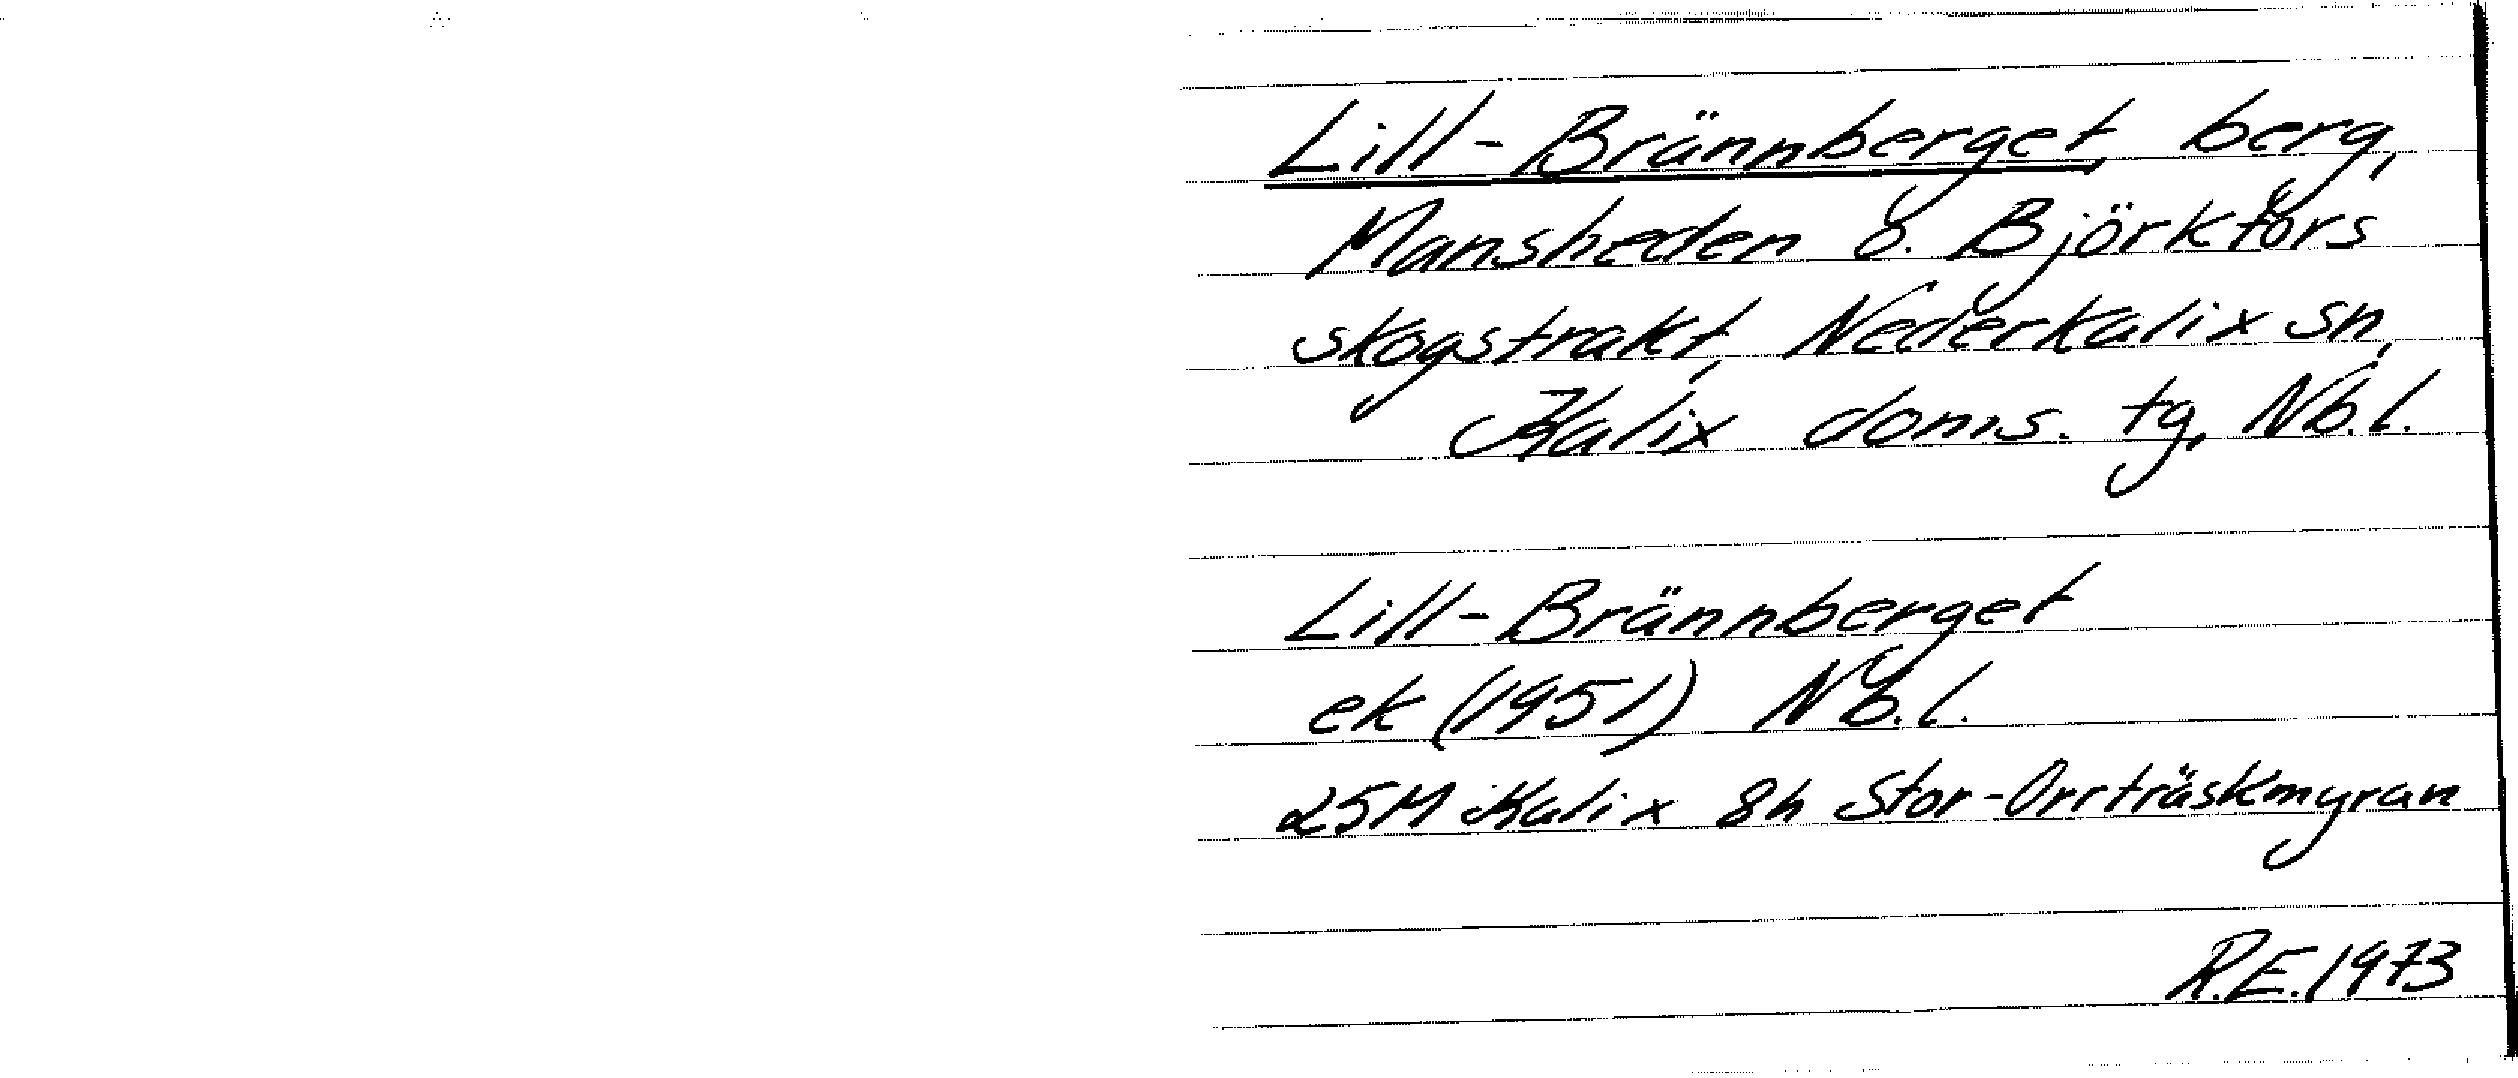 Lill-Brännberget, berg,
Mansheden o. Björkfors
skogstrakt, Nederkalix sn,
Kalix doms. tg, Nb.l.
Lill-Brännberget
ek (1951) Nb.l.
25M Kalix 8h Stor-Orrträskmyran
R.E. 1973